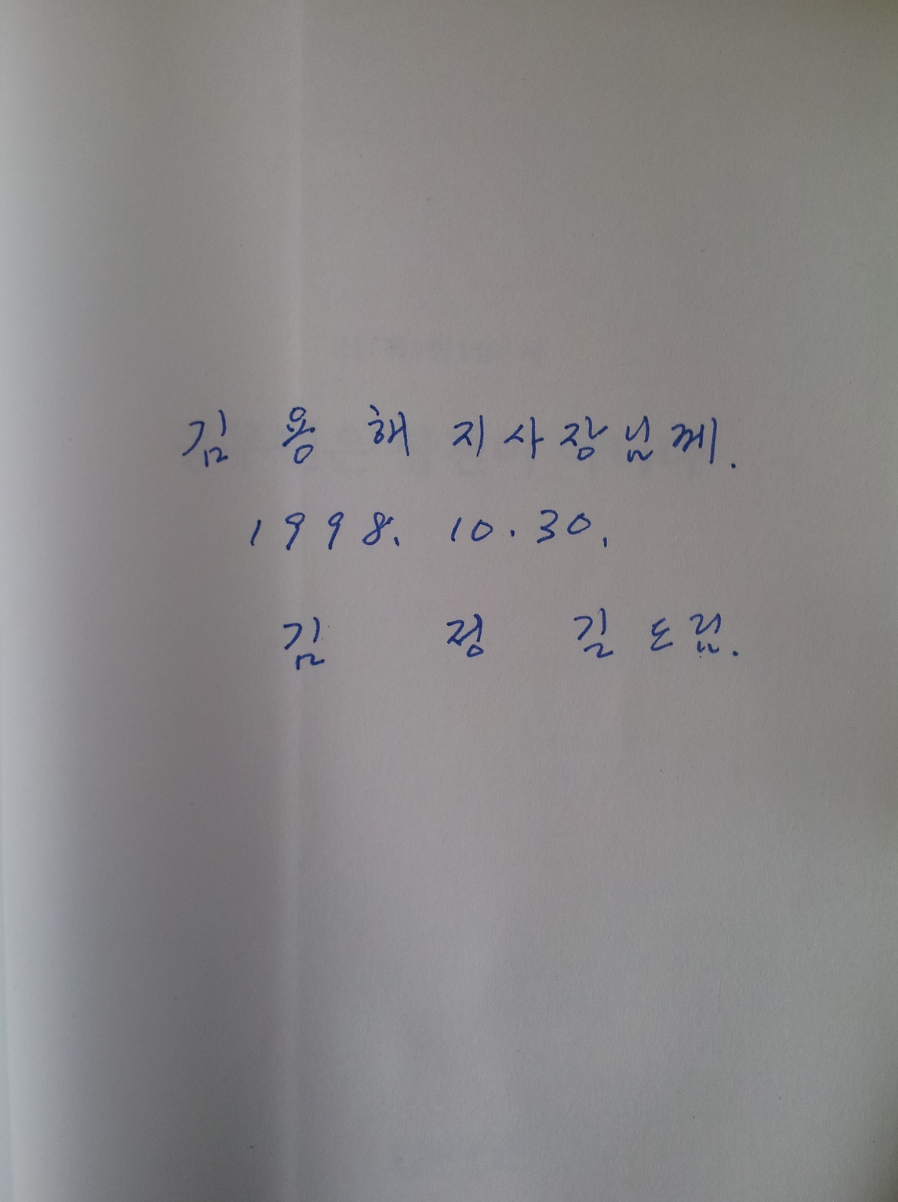 김 용 해 지사장님께.
1998. 10. 30.
김 정 길 드림.